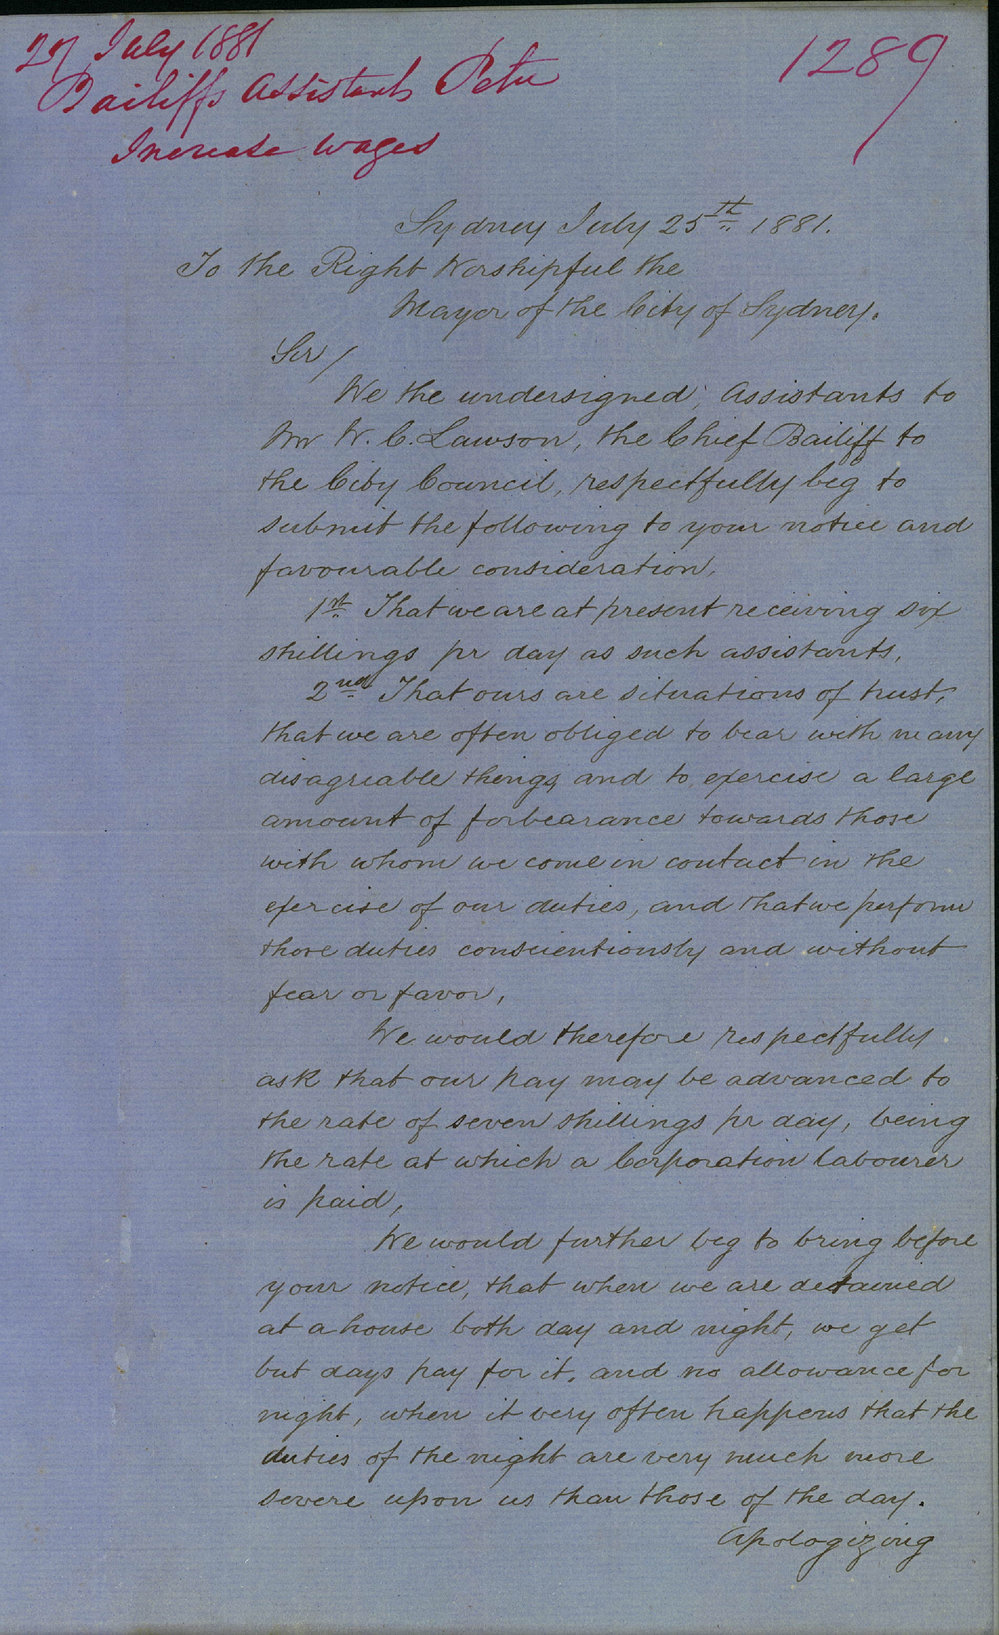 27 July 1881
1289
Bailiffs Assistants Petn
Increase Wages
Sydney July 25th 1881.
To the Right Worshipful the
Mayor of the City of Sydney.
Sir/
We the undersigned, Assistants to
Mr W. C. Lawson, the Chief Bailiff to
the City Council, respectfully beg to
submit the following to your notice and
favourable consideration,
1st That we are at present receiving six
shillings pr day as such assistants,
2nd That ours are situations of trust,
that we are often obliged to bear with many
disagreable things, and to exercise a large
amount of forbearance towards those
with whom we come in contact in the
exercise of our duties, and that we perform
those duties conscientiously and without
fear or favor,
We would therefore respectfully
ask that our pay may be advanced to
the rate of seven shillings pr day, being
the rate at which a Corporation labourer
is paid,
We would further beg to bring before
your notice, that when we are detained
at a house both day and night, we get
but days pay for it, and no allowance for
night, when it very often happens that the
duties of the night are very much more
severe upon us than those of the day.
Apologizing